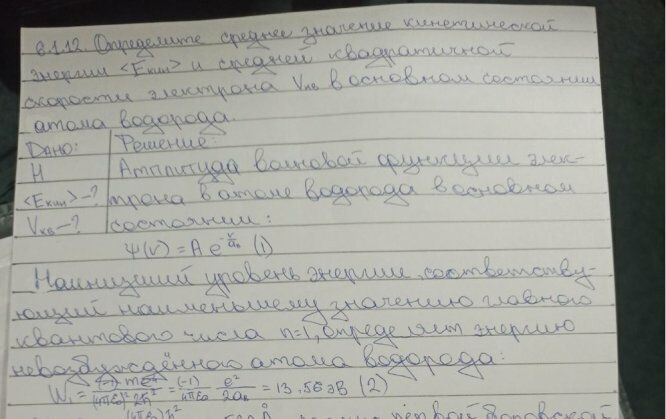 6.1.12. Определите среднее значение кинетической
энергии <Eкин> и средней квадратичной
скорости электрона Vкв в основном состоянии
атома водорода.
Дано: Решение:
H Амплитуда волновой функции элек-
<Eкин>-? трона в атоме водорода в основном
Vкв-? состоянии:
Ψ(r) = A e^(-r/aв) (1)
Наинизший уровень энергии, соответству-
ющий наименьшему значению главного
квантового числа n=1, определяет энергию
невозбуждённого атома водорода:
W₁ = (-1) me⁴/(4πε₀)²2ħ² = (-1)/4πε₀ e²/2aв = 13,56 эВ (2)
(4πε₀)ħ² первой боровской